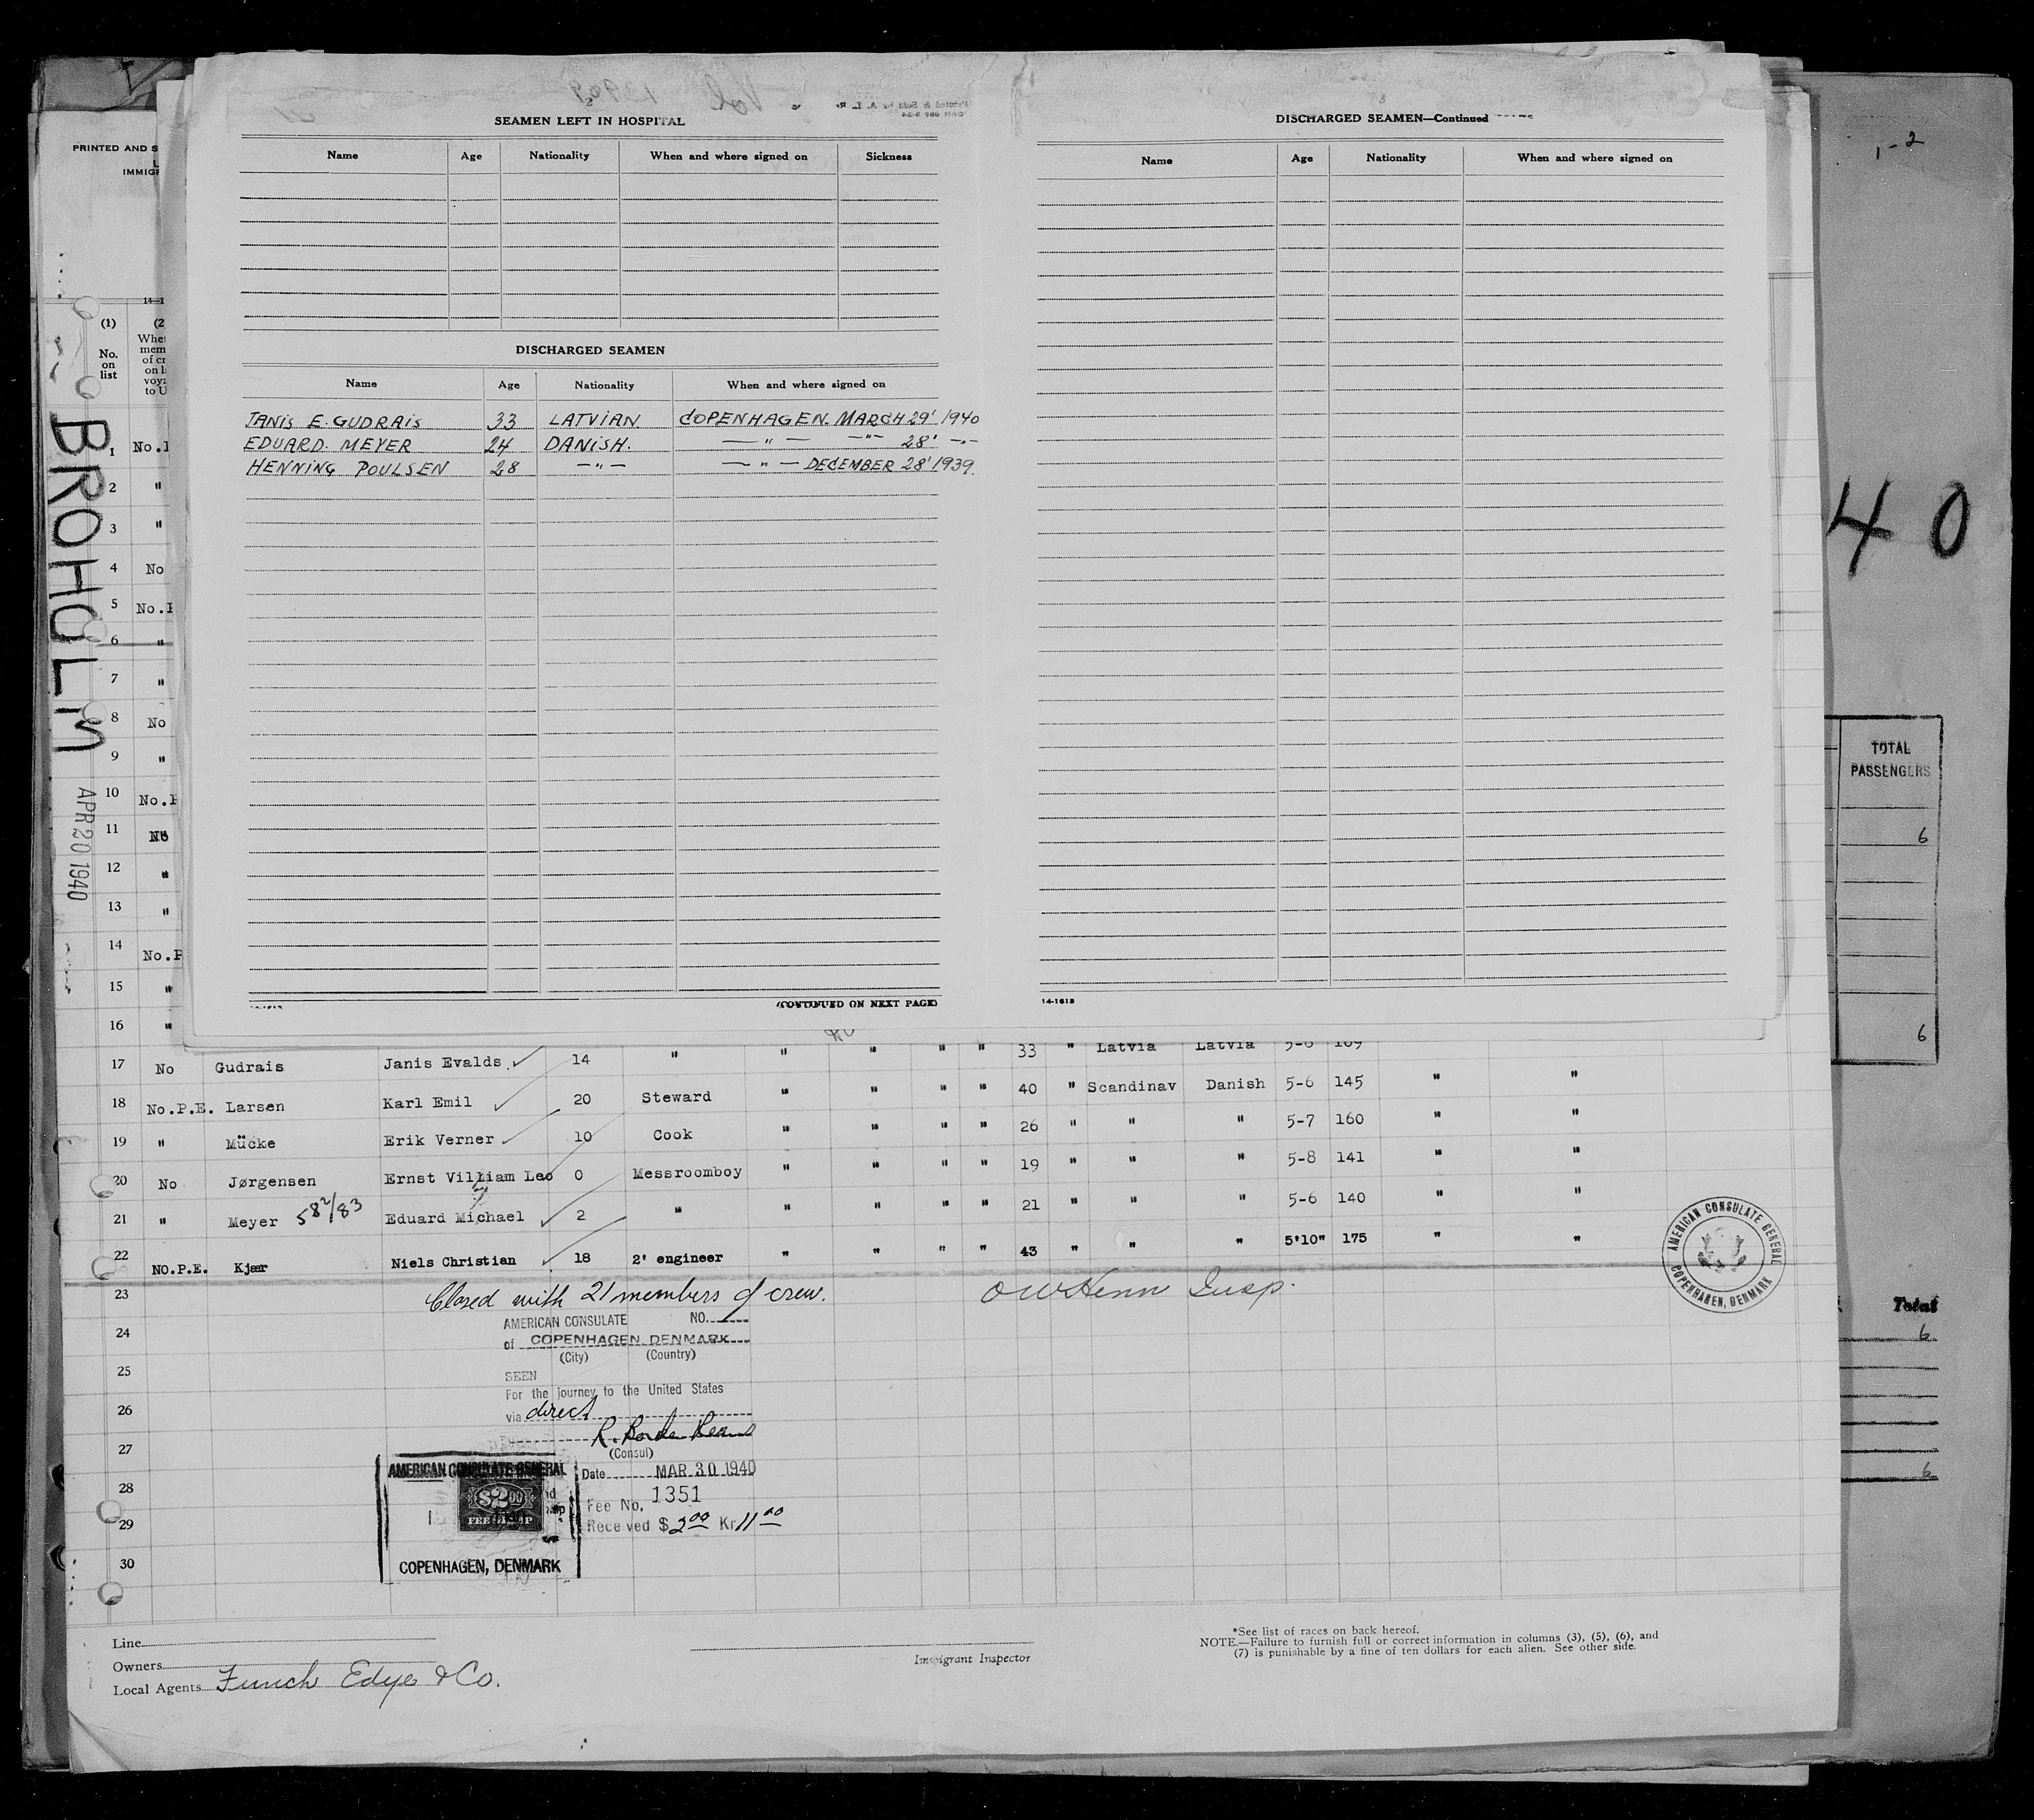 SEAMEN LEFT IN HOSPITAL
Name Age Nationality When and where signed on Sickness
DISCHARGED SEAMEN
Name Age Nationality When and where signed on
JANIS E. GUDRAIS 33 LATVIAN COPENHAGEN. MARCH 29' 1940
EDUARD. MEYER 24 DANISH. —"— —"— 28' —"—
HENNING POULSEN 28 —"— —"— DECEMBER 28' 1939.
(CONTINUED ON NEXT PAGE)
DISCHARGED SEAMEN—Continued
Name Age Nationality When and where signed on
14-1613
PRINTED AND S
IMMIG
(1) (2
No. on list
Whe
mem
of cr
on l
voya
to U
BROHOLM
APR 20 1940
1 No.
2 "
3 "
4 No
5 No.
6 "
7 "
8 No
9 "
10 No.P
11 No
12 "
13 "
14 No.P
15 "
16 "
17 No Gudrais Janis Evalds 14 " " " " " 33 " Latvia Latvia 5-8 169 " "
18 No.P.E. Larsen Karl Emil 20 Steward " " " " 40 " Scandinav Danish 5-6 145 " "
19 " Mücke Erik Verner 10 Cook " " " " 26 " " " 5-7 160 " "
20 No Jørgensen Ernst Villiam Leo 0 Messroomboy " " " " 19 " " " 5-8 141 " "
21 " Meyer 582/83 Eduard Michael 2 " " " " " 21 " " " 5-6 140 " "
22 NO.P.E. Kjær Niels Christian 18 2' engineer " " " " 43 " " " 5'10" 175 " "
23 Closed with 21 members of crew. OWHenn Insp.
24
25
26
27
28
29
30
AMERICAN CONSULATE NO.
of COPENHAGEN DENMARK
(City) (Country)
SEEN
For the journey to the United States
via direct
(Consul)
Date MAR 30 1940
Fee No. 1351
Received $2.00 Kr 11.00
AMERICAN CONSULATE GENERAL
$2.00
FEE STAMP
COPENHAGEN, DENMARK
AMERICAN CONSULATE GENERAL
COPENHAGEN, DENMARK
Line
Owners
Local Agents Funch Edye & Co.
Immigrant Inspector
*See list of races on back hereof.
NOTE.—Failure to furnish full or correct information in columns (3), (5), (6), and
(7) is punishable by a fine of ten dollars for each alien. See other side.
1-2
40
TOTAL
PASSENGERS
6
6
Total
6
6